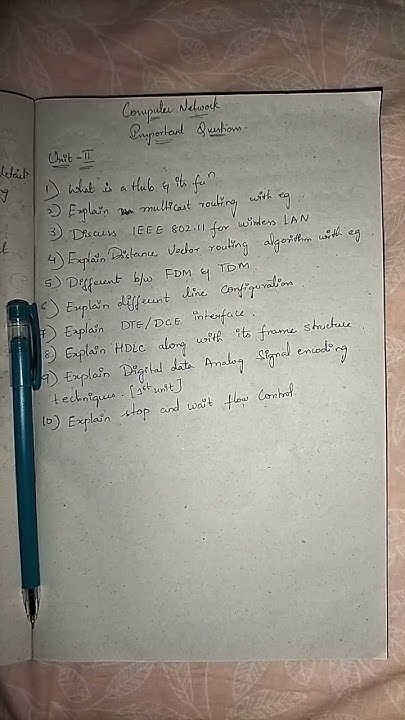 Computer Network
Important Questions.
Unit - II
1) What is a Hub & its fuⁿ
2) Explain multicast routing with eg.
3) Discuss IEEE 802.11 for wireless LAN
4) Explain Distance Vector routing algorithm with eg.
5) Different b/w FDM & TDM.
6) Explain different line configuration.
7) Explain DTE/DCE interface.
8) Explain HDLC along with its frame structure.
9) Explain Digital data Analog Signal encoding
techniques. [1st unit]
10) Explain stop and wait flow Control.